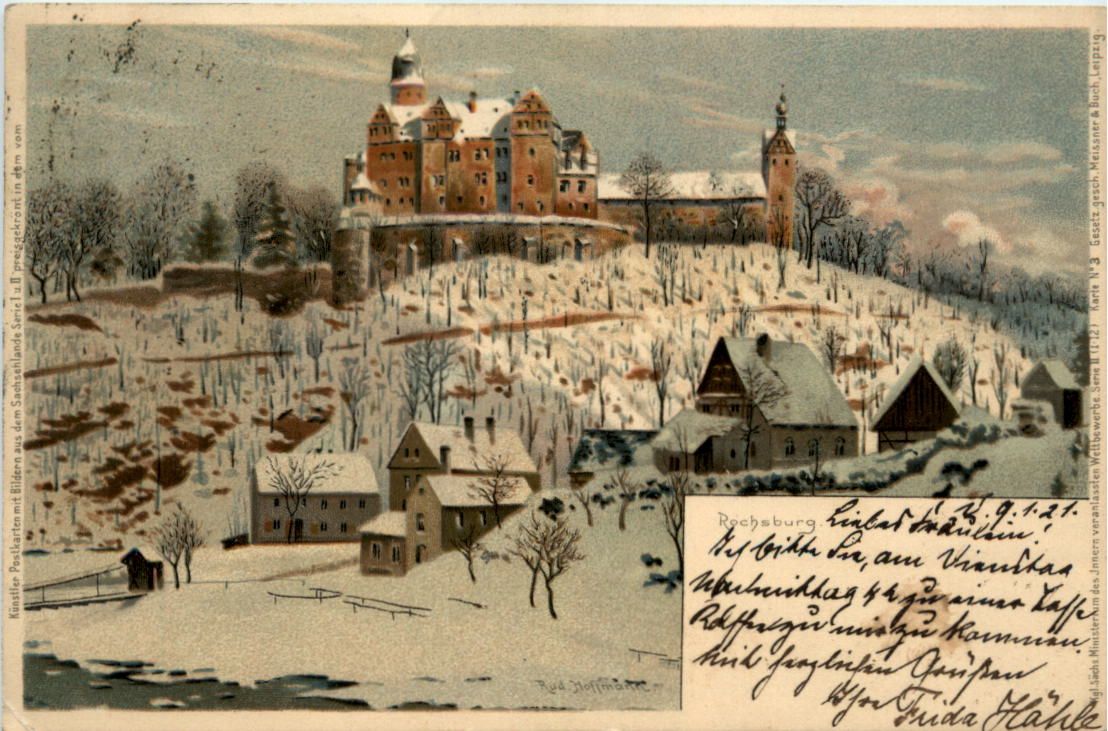 Künstler Postkarten mit Bildern aus dem Sachsenlande Serie I u. II preisgekrönt in dem vom
Kgl. Sächs. Ministerium des Innern veranlassten Wettbewerbe. Serie II (1-12) Karte No 3 Gesetz. gesch. Meissner & Buch, Leipzig.
Rochsburg.
9.1.21.
Liebes Fräulein!
Ich bitte Sie, am Dienstag
Nachmittag 1/4 zu einer Tasse
Kaffee zu mir zu kommen.
Mit herzlichen Grüßen
Ihre Frida Hähle
Rud. Hoffmann